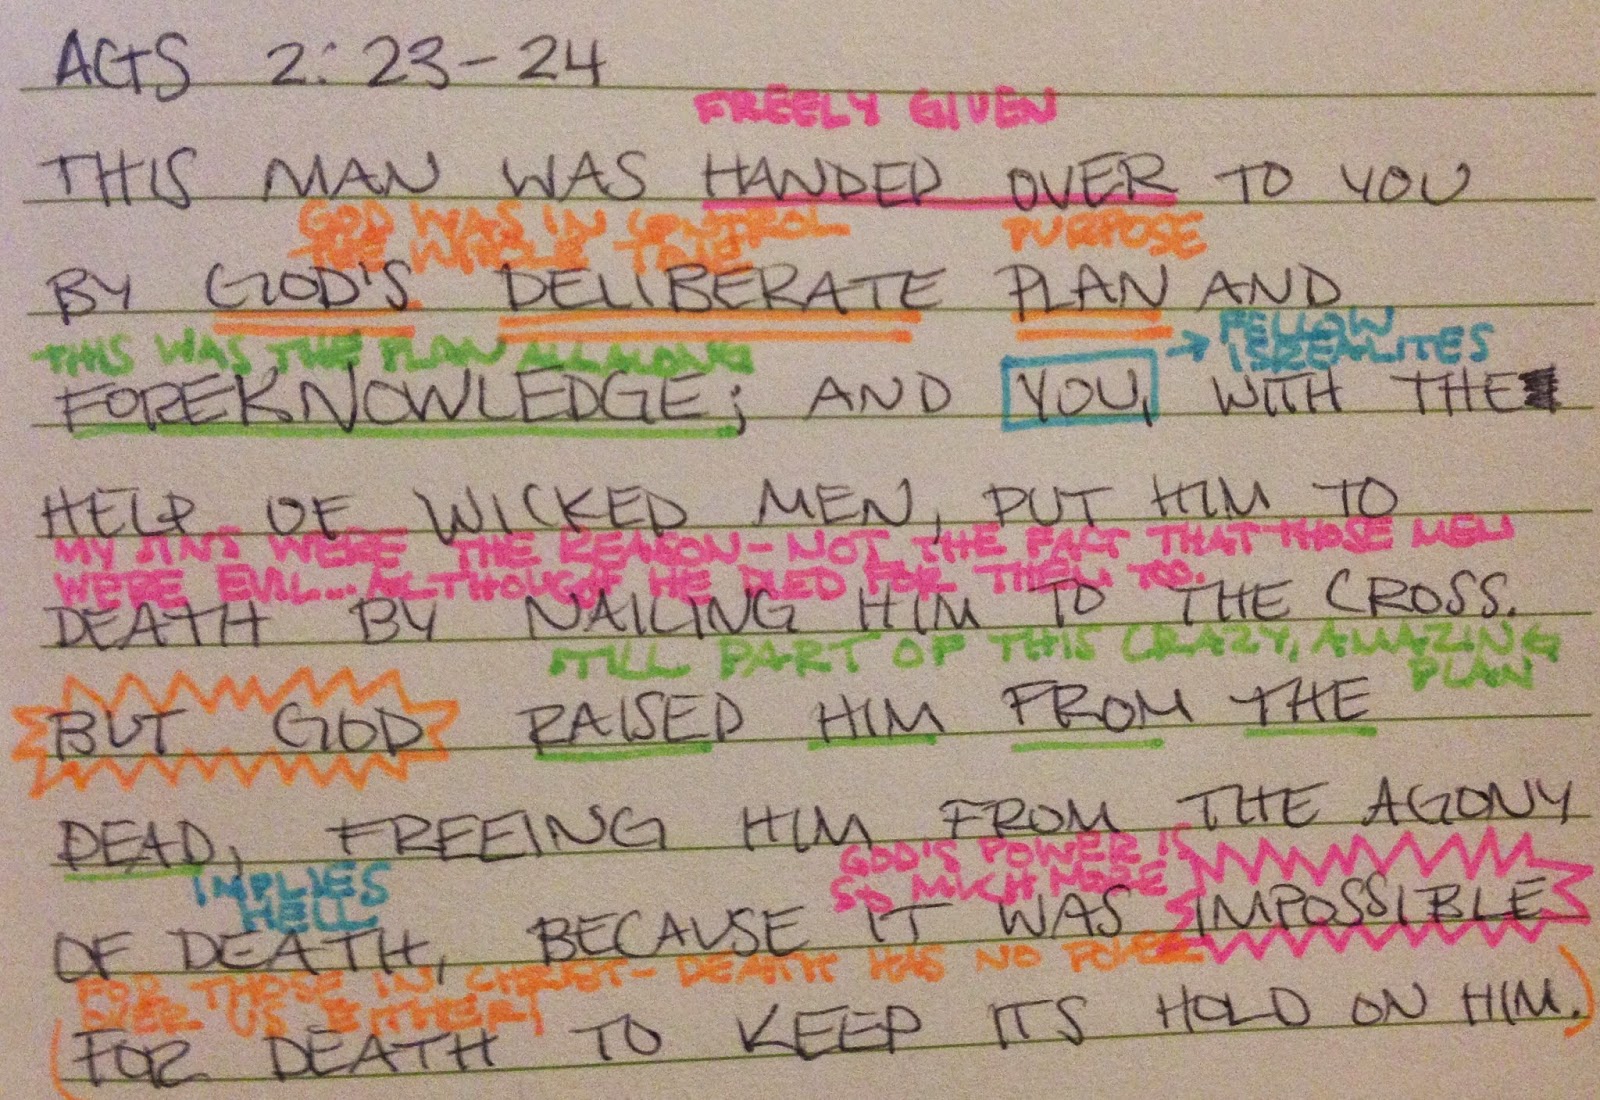 ACTS 2:23-24
FREELY GIVEN
THIS MAN WAS HANDED OVER TO YOU
GOD WAS IN CONTROL PURPOSE
THE WHOLE TIME
BY GOD'S DELIBERATE PLAN AND
THIS WAS THE PLAN ALL ALONG → FELLOW
ISREALITES
FOREKNOWLEDGE; AND YOU, WITH THE
HELP OF WICKED MEN, PUT HIM TO
MY SINS WERE THE REASON - NOT THE FACT THAT THOSE MEN
WERE EVIL... ALTHOUGH HE DIED FOR THEM TOO.
DEATH BY NAILING HIM TO THE CROSS.
STILL PART OF THIS CRAZY, AMAZING
PLAN
BUT GOD RAISED HIM FROM THE
DEAD, FREEING HIM FROM THE AGONY
IMPLIES GOD'S POWER IS
HELL SO MUCH MORE
OF DEATH, BECAUSE IT WAS IMPOSSIBLE
FOR THOSE IN CHRIST - DEATH HAS NO POWER
OVER US EITHER!
(FOR DEATH TO KEEP ITS HOLD ON HIM.)